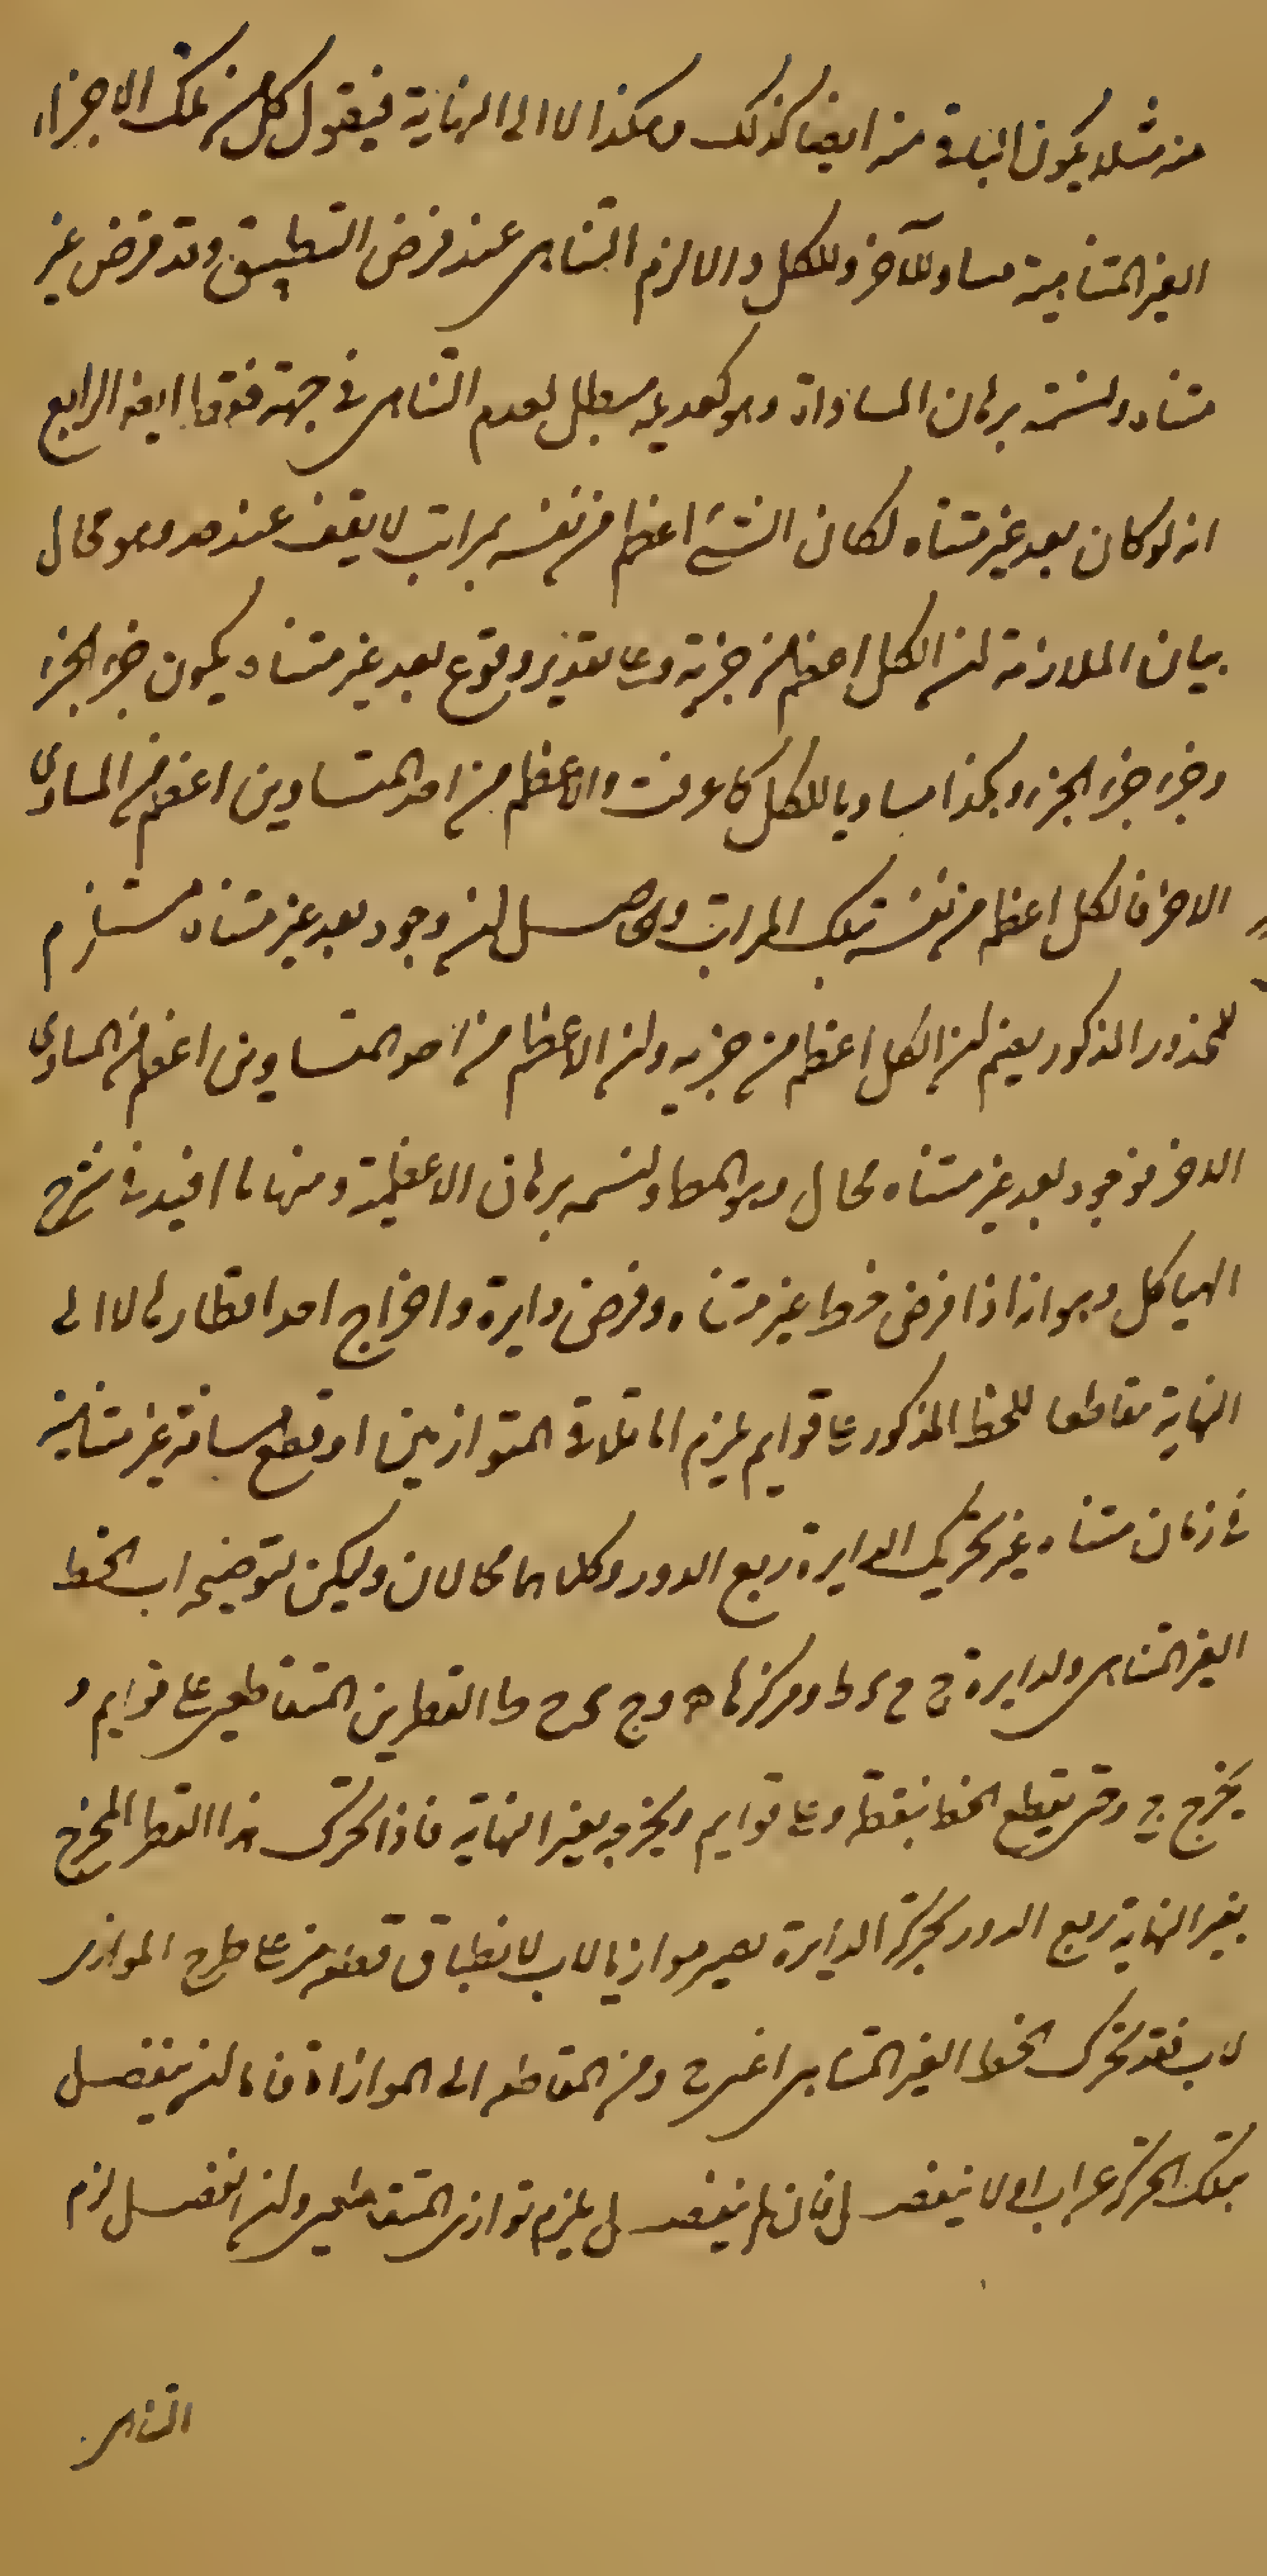 منه مثلا يكون الباقي منه ايضا كذلك وهكذا لا الى النهاية فنقول كل من تلك الاجزاء
الغير المتناهية مساو للآخر وللكل والا لزم التناهي عند فرض التطبيق وقد فرض غير
متناه ونسميه برهان المساواة وهو كعديله مبطل لعدم التناهي في جهة فوقها ايضا الرابع
انه لو كان بعد غير متناه لكان الشئ اعظم من نفسه بمراتب لا يقف عند حد وهو محال
بيان الملازمة ان الكل اعظم من جزئه وعلى تقدير وقوع بعد غير متناه يكون جزء الجزء
وجزء جزء الجزء وهكذا مساويا للكل كما عرفت والاعظم من احد المتساويين اعظم من المساوى
الاخر فالكل اعظم من نفسه بتلك المراتب والحاصل ان وجود بعد غير متناه مستلزم
للمحذور المذكور بضم ان الكل اعظم من جزئه وان الاعظم من احد المتساويين اعظم من المساوى
الاخر فوجود بعد غير متناه محال وهو المط ونسميه برهان الاعظمية ومنها ما افيد في شرح
الهياكل وهو انه اذا فرض خط غير متناه وفرض دايرة واخراج احد اقطارها لا الى
النهاية مقاطعا للخط المذكور على قوايم يلزم اما تلاقى المتوازيين او قطع مسافة غير متناهية
في زمان متناه عند تحريك الدايرة ربع الدور وكلاهما محالان وليكن لتوضيحه اب الخط
الغير المتناهى والدايرة ج ح ى ط ومركزها ه و ج ى ح ط القطرين المتقاطعين على قوايم و
يخرج ج ى حتى يقطع الخط بنقطة و على قوايم ويخرجه بغير النهاية فاذا تحرك هذا القطر المخرج
بغير النهاية ربع الدور بحركة الدايرة يصير موازيا لاب لانطباق قطعة منه على ط ح الموازى
لاب فقد تحرك الخط الغير المتناهى اعنى ج و من المقاطعه الى الموازاة فاما ان ينفصل
بتلك الحركة عن اب او لا ينفصل فان لم ينفصل يلزم توازى المتقاطعين وان انفصل لزم
التناهى